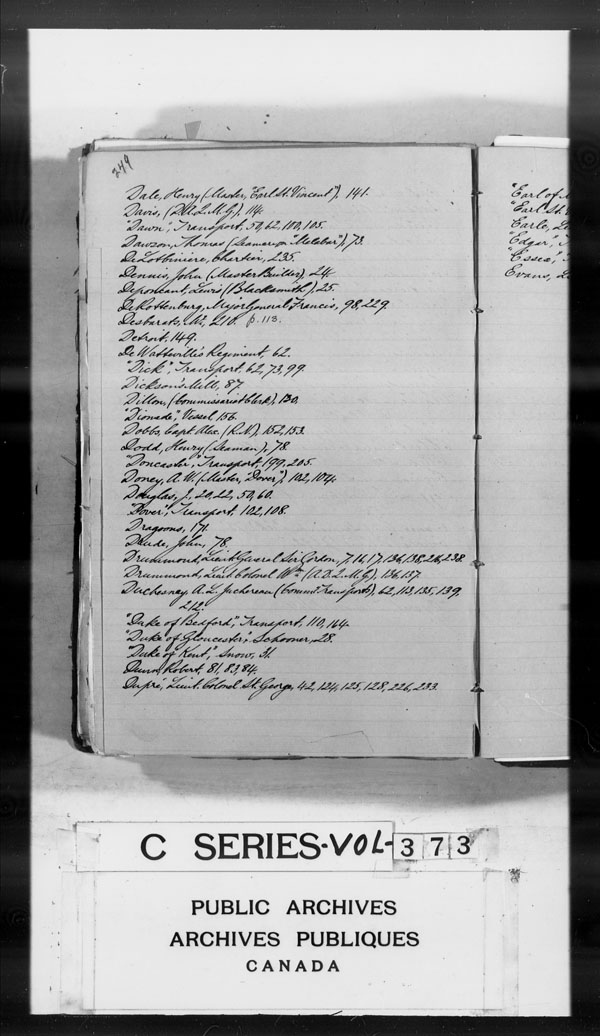 249
Dale, Henry (Master, "Earl St. Vincent"), 141.
Davis, (D.A.Q.M.G.), 114.
"Dawn", Transport, 50, 62, 100, 105.
Dawson, Thomas (Seaman "Malabar"), 73.
DeLotbinière, Chartier, 235.
Dennis, John (Master Builder), 24.
Deponsant, Louis (Blacksmith), 25.
DeRottenburg, Major General Francis, 98, 229.
Desbarats, Mr, 210. p. 113.
Detroit, 149.
De Watteville's Regiment, 62.
"Dick", Transport, 62, 73, 99.
Dickson's Mill, 87.
Dillon, (Commissariat Clerk), 130.
"Diomade", Vessel, 156.
Dobbs, Capt Alex. (R.N.), 152, 153.
Dodd, Henry (Seaman), 78.
"Doncaster", Transport, 199, 205.
Doney, A.W. (Master, "Dover"), 102, 104.
Douglas, J., 20, 22, 50, 60.
"Dover", Transport, 102, 108.
Dragoons, 171.
Drude, John, 78.
Drummond, Lieut General Sir Gordon, 7, 16, 17, 136, 138, 216, 238.
Drummond, Lieut Colonel Wm (A.D.Q.M.G.), 136, 137.
Duchesnay, A.L. Juchereau (Commd Transports), 62, 113, 135, 139,
212.
"Duke of Bedford", Transport, 110, 144.
"Duke of Gloucester", Schooner, 28.
"Duke of Kent", Snow, 31.
Dunn, Robert, 81, 83, 84.
Dupré, Lieut. Colonel St. George, 42, 124, 125, 128, 226, 233.
"Earl of
"Earl St.
Earle,
"Edgar",
"Essex",
Evans,
C SERIES-VOL-373
PUBLIC ARCHIVES
ARCHIVES PUBLIQUES
CANADA